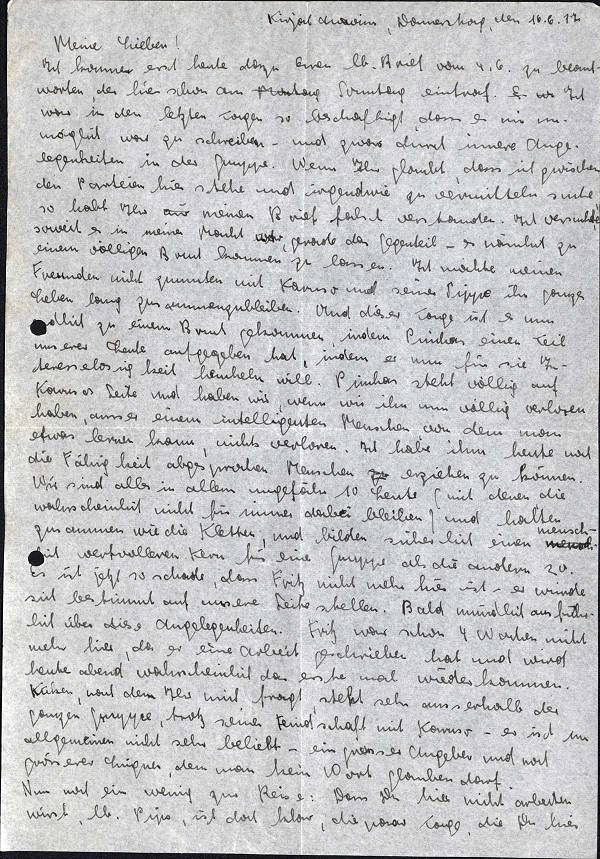 Kirjat Anavim, Donnerstag, den 16.6.
Meine Lieben!
Ich komme erst heute dazu Euren lb. Brief vom 4.6. zu beant-
worten, der hier schon am Sonntag eintraf. Ich
war in den letzten Tagen so beschäftigt dass es mir un-
möglich war zu schreiben - und zwar durch innere Ange-
legenheiten in der Gruppe. Wenn Ihr glaubt, dass ich zwischen
den Parteien hier stehe und irgendwie zu vermitteln suche
so habt Ihr meinen Brief falsch verstanden. Ich versuchte
soweit es in meiner Macht war, gerade das Gegenteil - es nämlich zu
einem völligen Bruch kommen zu lassen. Ich möchte meinen
Freunden nicht zumuten mit Karuso und seiner Sippe ihr ganzes
Leben lang zusammenzubleiben. Und dieser Tage ist es nun
endlich zu einem Bruch gekommen, indem Pinchas einen Teil
unserer Leute aufgegeben hat, indem er nun für sie In-
teresselosigkeit heucheln will. Pinchas steht völlig auf
Karusos Seite und haben wir, wenn wir ihn nun völlig verloren
haben, ausser einem intelligenten Menschen von dem man
etwas lernen kann, nichts verloren. Ich habe ihm heute noch
die Fähigkeit abgesprochen Menschen zu erziehen zu können.
Wir sind alles in allem ungefähr 10 Leute (mit denen die
wahrscheinlich nicht für immer dabei bleiben) und halten
zusammen wie die Kletten, und bilden sicherlich einen mensch-
lich wertvolleren Kern für eine Gruppe als die andern 20.
Es ist jetzt so schade, dass Fritz nicht mehr hier ist - er würde
sich bestimmt auf unsere Seite stellen. Bald mündlich ausführ-
lich über diese Angelegenheiten. Fritz war schon 4 Wochen nicht
mehr hier, da er eine Arbeit geschrieben hat und wird
heute abend wahrscheinlich das erste mal wiederkommen.
nach dem Ihr mich fragt, steht sehr ausserhalb der
ganzen Gruppe, trotz seiner Feindschaft mit Karuso - er ist im
allgemeinen nicht sehr beliebt - ein grosser Angeber und noch
grösserer Lügner, dem man kein Wort glauben darf.
Nun noch ein wenig zur Reise: Dass Du hier nicht arbeiten
wirst, lb. Pipo, ist doch klar, die paar Tage, die Du hier